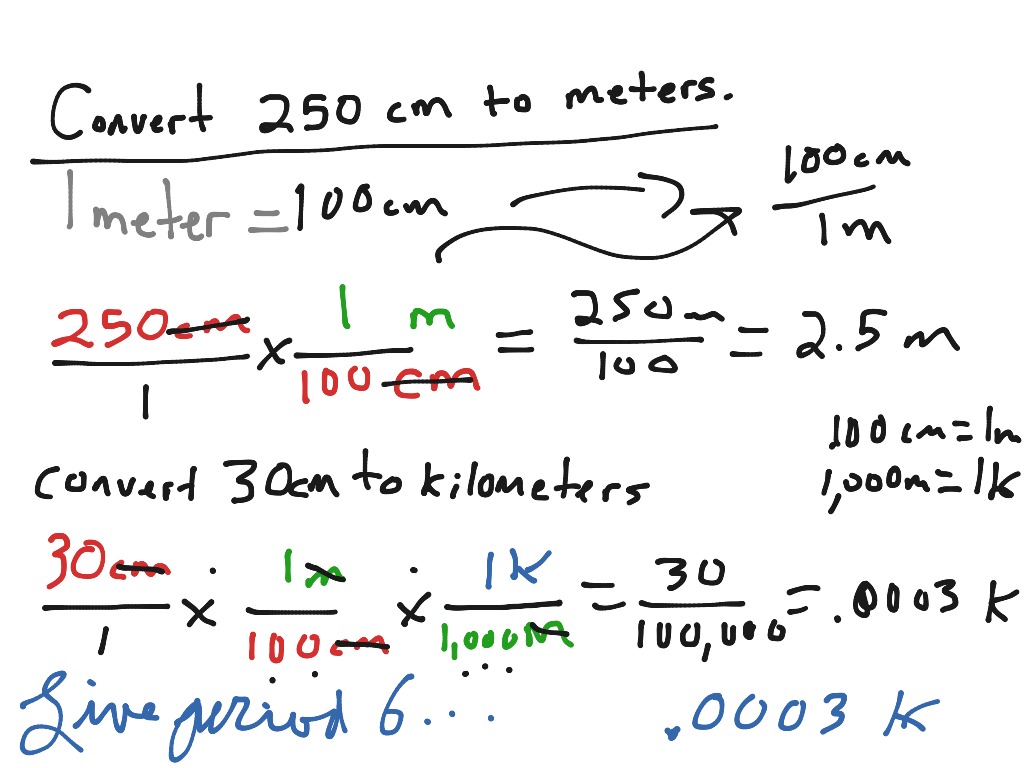 Convert 250 cm to meters.
1 meter = 100cm
100cm / 1m
250cm / 1 x 1 m / 100 cm = 250m / 100 = 2.5 m
100cm = 1m
1,000m = 1K
convert 30cm to kilometers
30cm / 1 x 1m / 100cm x 1K / 1,000m = 30 / 100,000 = .0003 K
period 6... .0003 K